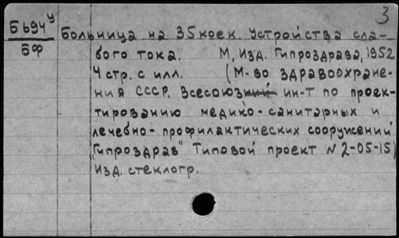 3
Б694у
БФ
Больница на 35 коек. Устройства сла-
бого тока. М, Изд. Гипроздрава, 1952
4 стр. с илл. (М-во здравоохране-
ния СССР. Всесоюзний ин-т по проек-
тированию медико-санитарных и
лечебно-профилактических сооружений
"Гипроздрав" Типовой проект N 2-05-15)
Изд. стеклогр.